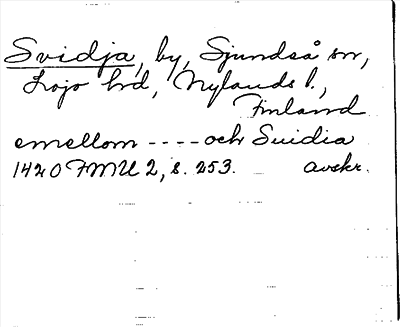 Svidja, by, Sjundeå sn,
Lojo hd, Nylands l.,
Finland
emellom ---- och Suidia
1420 FMU 2, s. 253. avskr.